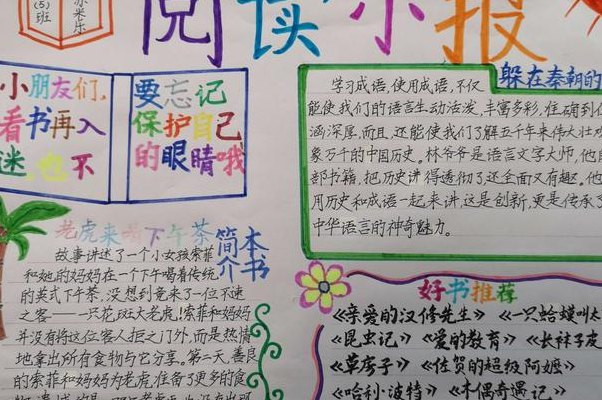 (5)
班
阅读小报
小朋友们,
看书再入
迷,也不
要忘记
保护自己
的眼睛哦
躲在秦朝的
学习成语,使用成语,不仅
能使我们的语言生动活泼,丰富多彩,往确到位
涵深度,而且,还能使我们了解五千年来伟大壮
象万千的中国历史。林爷爷是语言文字大师,他用
部书籍,把历史讲得透彻了还全面又有趣。他
用历史和成语一起来讲,这是创新,更是传承了
中华语言的神奇魅力。
老虎来喝下午茶
本书
简介
故事讲述了一个小女孩索菲
和她的妈妈在一个下午喝着传统
的英式下午茶,没想到竟来了一位不速
之客——一只花斑大老虎!索菲和妈妈
并没有将这位客人拒之门外,而是热情
地拿出所有食物与它分享。第二天,善良
的索菲和妈妈为老虎准备了更多的食
好书推荐
《亲爱的汉修先生》《一只蛤蟆叫
《昆虫记》《爱的教育》《长袜子皮
《草房子》《佐贺的超级阿嬷》
《哈利·波特》《木偶奇遇记》